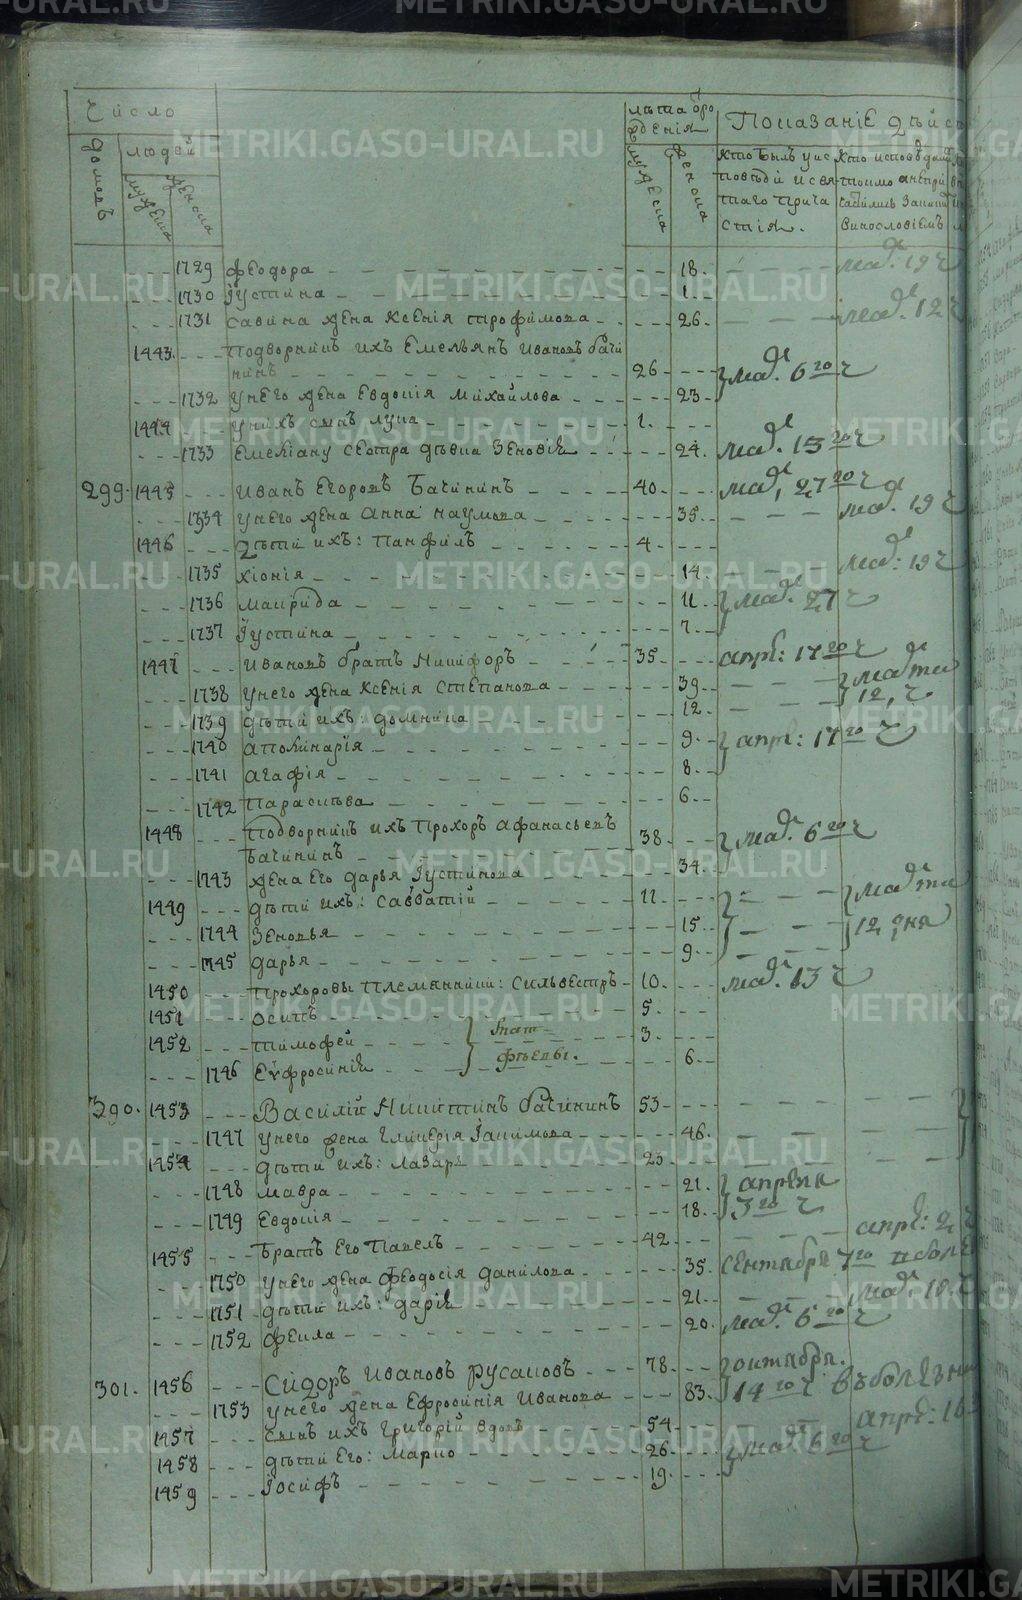 Число
лѣта рожденія
Показаніе дѣйс
домовъ
людей
мужеска
женска
мужеска
женска
кто былъ уис
повѣди и свя
таго прича
стія.
1729 Феодора 18. мар. 19 г
1730 Іустина 1.
1731 савина жена Ксенія трофимова 26. мар. 12 г
1443. Подворникъ ихъ Емельянъ Ивановъ бачи
нинъ 26 мар. 6 го
1732 унего жена Евдокія Михайлова 23
1444 унихъ сынъ лука 1.
1733 Емеліану сестра дѣвка Зеновія 24. мар. 13 го
299. 1445 Иванъ Егоровъ Бачининъ 40. мар. 27 го
1734 унего жена Анна наумова 35. мар. 19 г
1446 дѣти ихъ: Панфилъ 4.
1735 хіонія 14. мар: 19 г
1736 мавида 11 мар. 27 г
1737 Іустина 7.
1447 Ивановъ братъ Никифоръ 35 апр: 17 го
1738 унего жена Ксенія Степанова 39. марта
1739 дѣти ихъ: домника 12. 12, г
1740 аполинарія 9. апр: 17 го
1741 агафія 8.
1742 Параскева 6.
1448 Подворникъ ихъ Прохоръ афанасьевъ
Бачининъ 38. мар. 6 го
1743 жена Его дарья Іустинова 34.
1449 дѣти ихъ: Савватій 11. марта
1744 Зеновья 15. 12, дня
1745 дарья 9
1450 Прохоровы племянники: Сильвестръ 10. мар. 13 г
1451 осипъ 5.
1452 тимофей 3.
1746 Еѵфросинія 6.
390. 1453 Василій Никитинъ бачининъ 53
1747 унего жена Гликерія Іакимова 46.
1454 дѣти ихъ: лазарь 23
1748 мавра 21.
1749 Евдокія 18.
1455 братъ Его Павелъ 42 апр: 2
1750 унего жена Феодосія данилова 35. Сентября 7 го
1751 дѣти ихъ: дарія 21. мар. 18.
1752 Фекла 20. мар. 6 го
301. 1456 Сидоръ Ивановъ русаковъ 78. октября.
1753 унего жена Ефросинія Иванова 83. 14 го въ болѣзни
1457 сынъ ихъ Григорій вдовъ 54 апр: 16
1458 дѣти Его: Марко 26. мар. 6 го
1459 Іосифъ 19.
METRIKI.GASO-URAL.RU